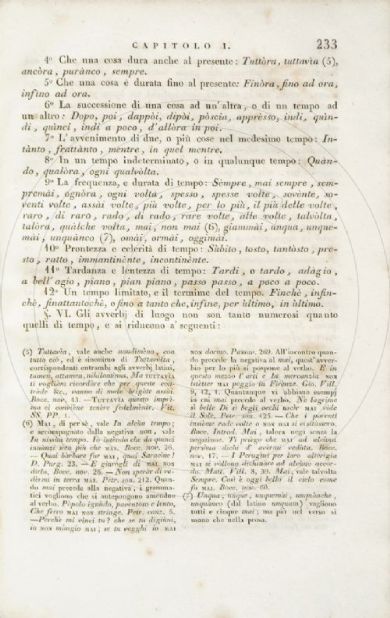 CAPITOLO I. 233
4° Che una cosa dura anche al presente: Tuttòra, tuttavìa (5),
ancòra, purànco, sempre.
5° Che una cosa è durata fino al presente: Finòra, fino ad ora,
infino ad ora.
6° La successione di una cosa ad un'altra, o di un tempo ad
un altro: Dopo, poi, dappòi, dipòi, pòscia, apprèsso, indi, quìn-
di, quìnci, indi a poco, d'allòra in poi.
7° L'avvenimento di due, o più cose nel medesimo tempo: In-
tànto, frattànto, mèntre, in quel mentre.
8° In un tempo indeterminato, o in qualunque tempo: Quàn-
do, qualòra, ogni qualvòlta.
9° La frequenza, e durata di tempo: Sèmpre, mai sempre, sem-
premài, ognòra, ogni volta, spesso, spesse volte, sovente, so-
venti volte, assài volte, più volte, per lo più, il più delle volte,
raro, di raro, rado, di rado, rare volte, alle volte, talvòlta,
talòra, quàlche volta, mai, non mai (6), giammài, ùnqua, unque-
mài, unquànco (7), omài, ormài, oggimài.
10° Prontezza e celerità di tempo: Sùbito, tosto, tantòsto, pre-
sto, ratto, immantinènte, incontinènte.
11° Tardanza e lentezza di tempo: Tardi, o tardo, adàgio,
a bell'agio, piano, pian piano, passo passo, a poco a poco.
12° Un tempo limitato, e il termine del tempo. Finchè, infin-
chè, finattantochè, o fino a tanto che, infine, per ùltimo, in ùltimo.
§. VI. Gli avverbj di luogo non son tanto numerosi quanto
quelli di tempo, e si riducono a' seguenti:
(5) Tuttavìa, vale anche nondimèno, con
tutto ciò, ed è sinonimo di Tuttavolta,
corrispondenti entrambi agli avverbj latini,
tamen, attamen, nihilominus. Ma TUTTAVIA
vi vogliam ricordare che per queste con-
trade &c., siamo di molte brigate usati.
Bocc. nov. 43. — TUTTAVIA questo impri-
ma ci conviene tenere fedelmente. Vit.
SS. PP.
(6) Mai, di per sè, vale In alcùn tempo;
e accompagnato dalla negativa non, vale
In nissùn tempo.
— Qual bàrbare fur MAI, quai Saracine?
D. Purg. 23. — E giurògli di MAI non
dirlo. Bocc. nov.
dérmi in terra MAI. Petr. son. 212. Quan-
do mai precede alla negativa, i gramma-
tici vogliono che si antepongano amendue
al verbo. Popolo ignùdo, paventoso e lento,
Che ferro MAI non stringe. Petr. canz. 5.
non dormo. Passav. 269. All'incontro quan-
do precede la negativa al mai, quest'avver-
bio per lo più si pospone al verbo. E in
questo mezzo
MAI poggio in Firenze. Gio. Vill.
9, 12, 1. Quantunque vi abbiano esempj
in cui mai precede al verbo.
Bocc. Introd. Mai, talora nega senza la
negativa.
nov. 17. — I Perugini per loro alterigia
MAI si vollono dichinare ad alcuno accor-
do. Matt. Vill. 8, 39. Mai, vale talvolta
Sempre. Così è oggi bello il cielo come
fu MAI. Bocc. nov. 60.
(7) Unqua, unque, unquemài, unquànche,
unquànco (dal latino unquam) vagliono
tutti e cinque mai; ma più nel verso si
usano che nella prosa.